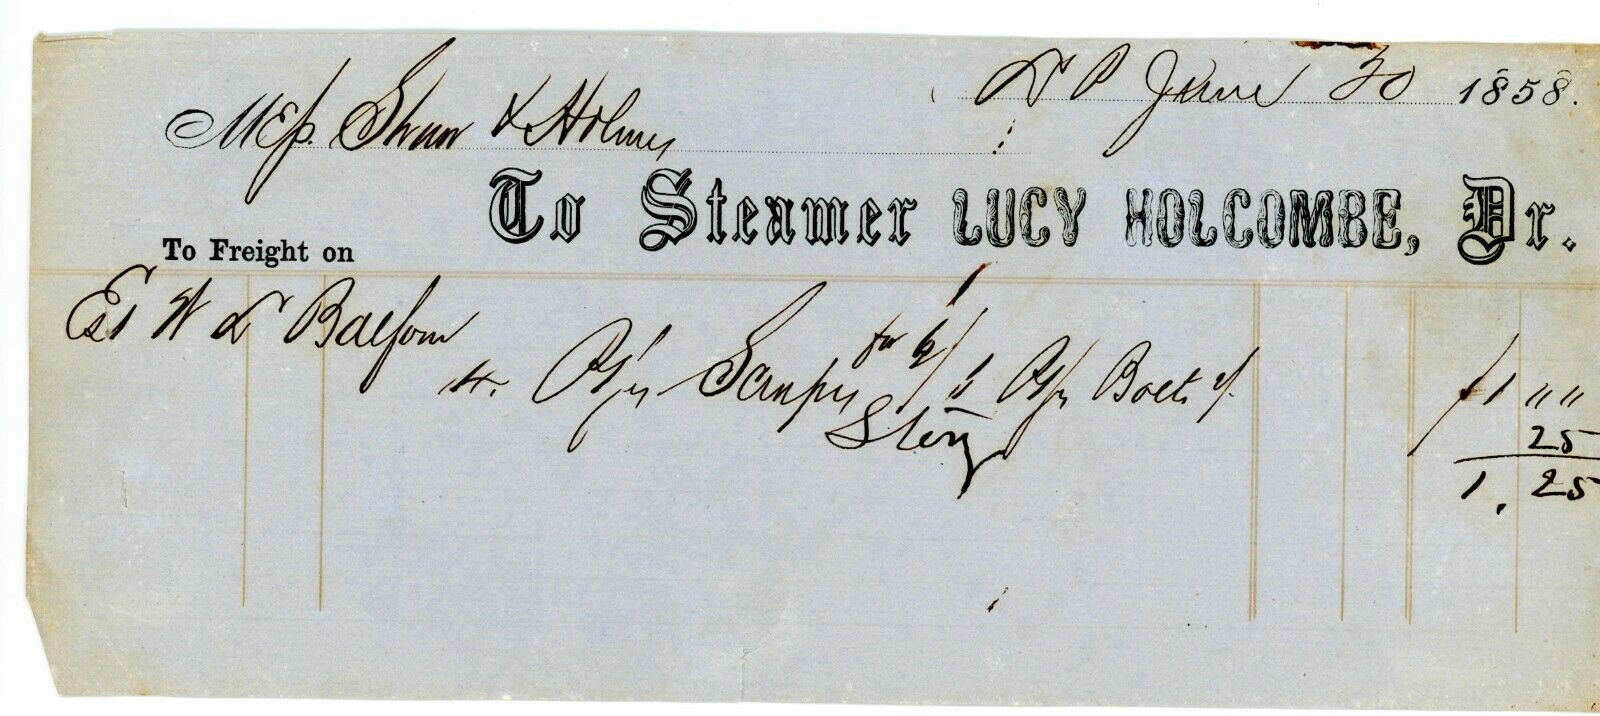 L P June 30 1858.
Mess. Shaw & Holmes
To Steamer LUCY HOLCOMBE, Dr.
To Freight on
Est W L Balfour
4. Scrapers for 6/ Bolts 1 " "
Story 25
1. 25